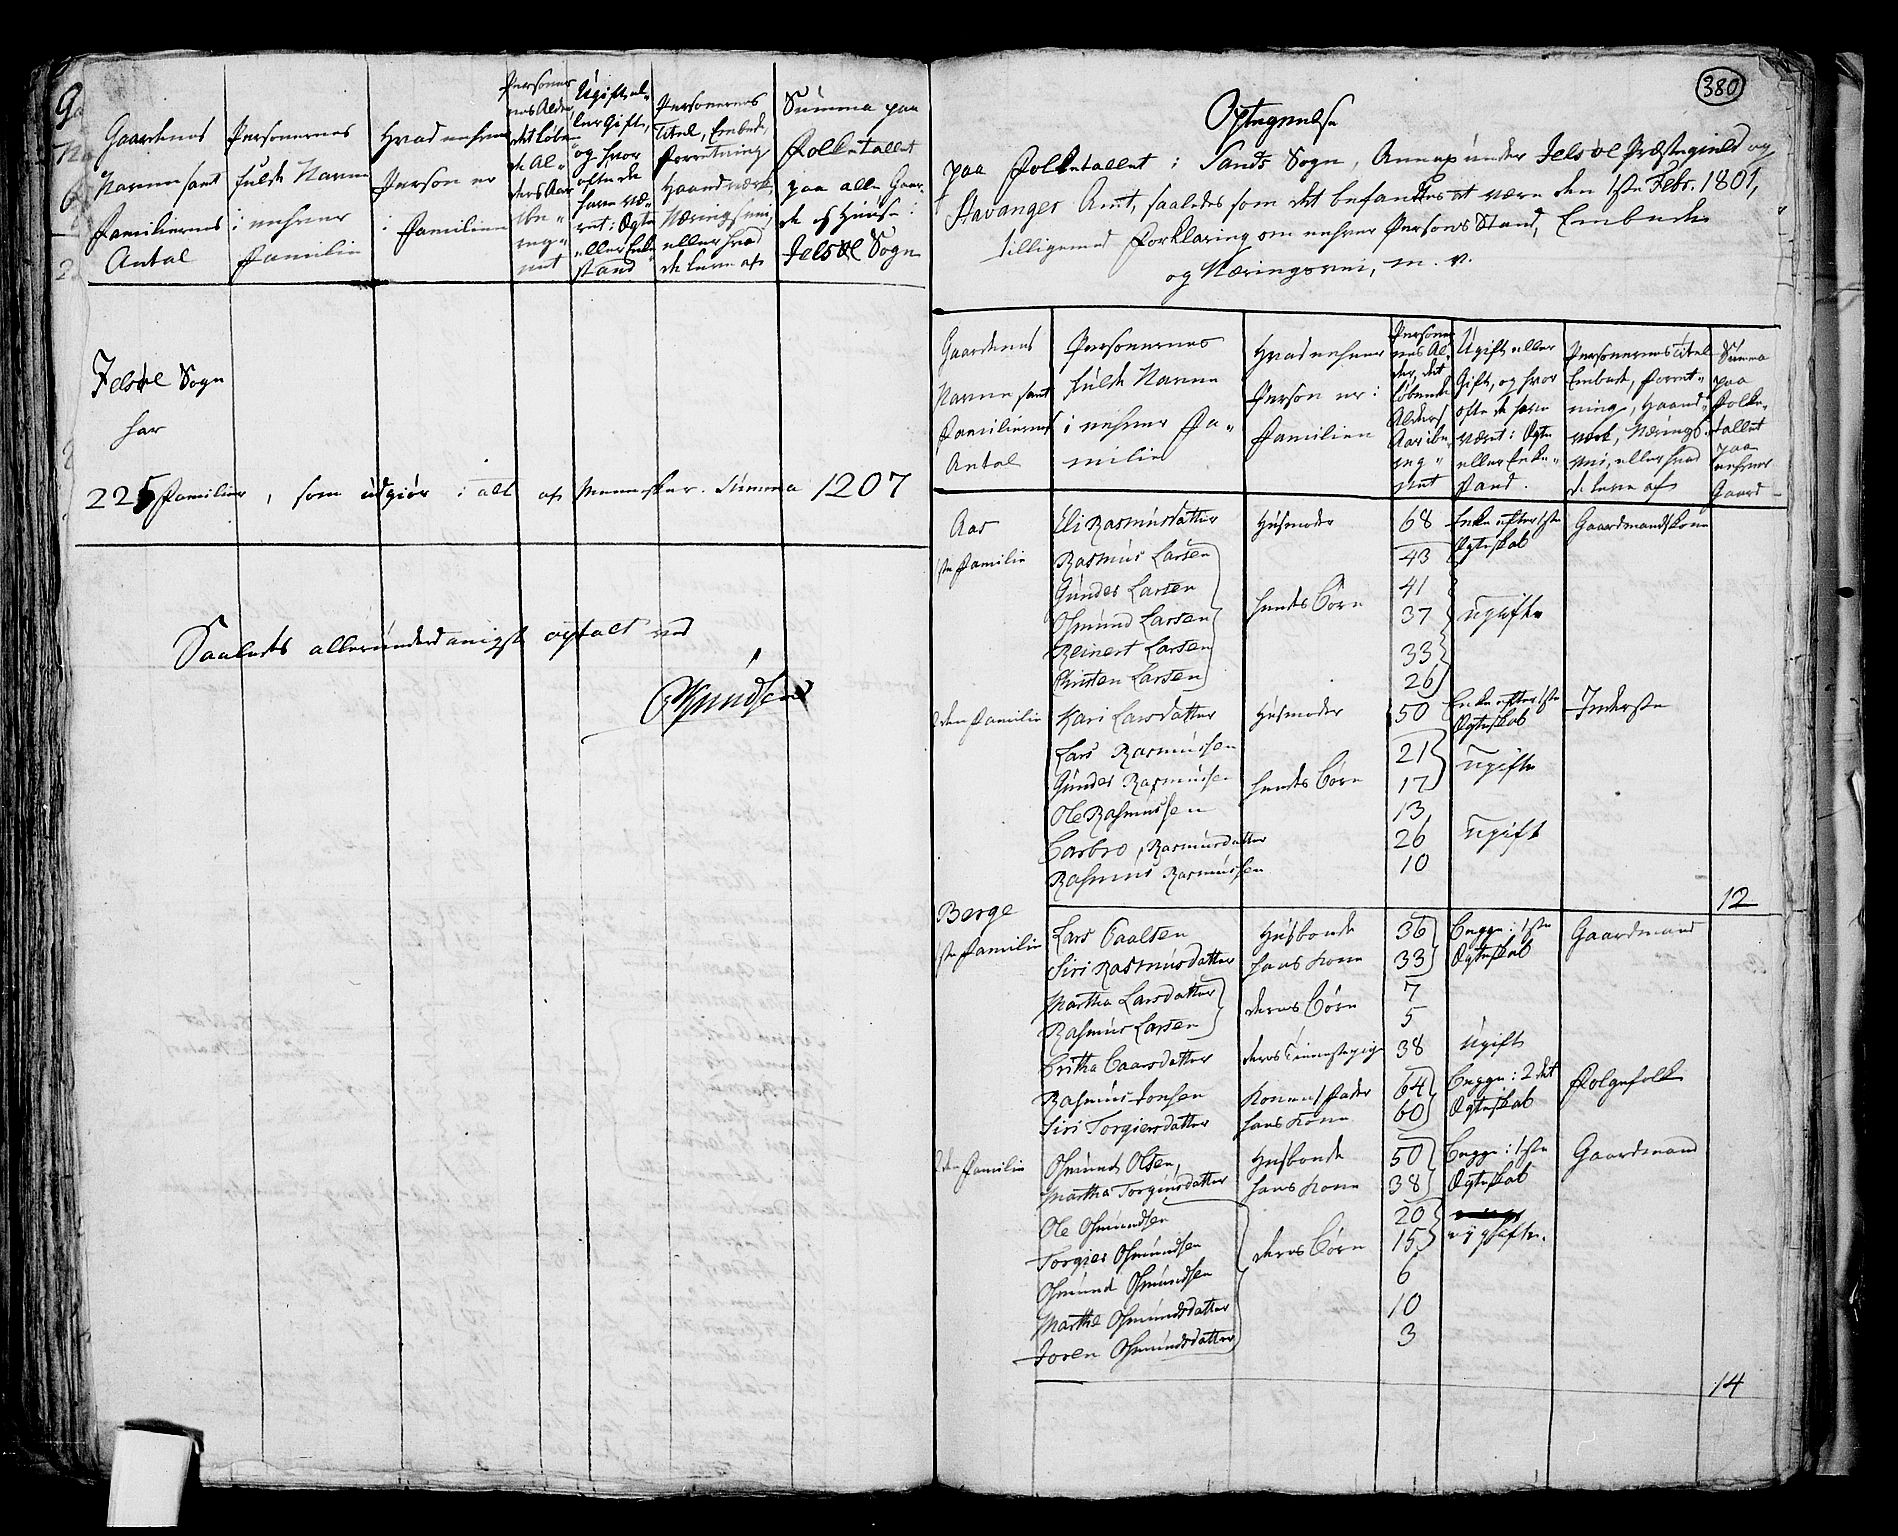 Gaardenes
Navne samt
Familiernes
Antal
Personernes
fulde Navne
i enhver
Familie
Hvad enhver
Person er
i Familien
Personer
nes Alder,
det løben
de Al-
ders Aar
ibe-
reg-
net
Ugift el-
ler Gift,
og hvor
ofte de
have væ-
ret i Ægte
eller Enke
stand
Personernes
Titel, Embede,
Forretning
Haandværk,
Næringsvei,
eller hvad
de leve af
Summa paa
Folketallet
paa alle Gaar-
de og Huuse i
Jelsøe Sogn
Jelsøe Sogn
har
225 familier, som udgiør i alt af Mennesker. Summa 1207
Saaledes allerunderdanigst optalt ved
Knudsen
380
Optegnelse
paa Folketallet i Sands Sogn, Annex under Jelsøe Præstegield og
Stavanger Amt, saaledes som det befandtes at være den 1ste Febr. 1801,
tilligemed Forklaring om enhver Persons Stand, Embede
og Næringsvei, m. v.
Gaardenes
Navne samt
Familiernes
Antal
Personernes
fulde Navne
i enhver Fa-
milie
Hvad enhver
Person er i
Familien
Personer
nes Al-
der, det
løbende
Alders
Aar ibe-
reg-
net
Ugift eller
Gift, og hvor
ofte de have
været i Ægte
eller Enke-
stand.
Personernes Titel
Embede, Forret-
ning, Haand-
værk, Nærings-
vei, eller hvad
de leve af
Summa
paa
Folke-
tallet
paa
enhver
Gaard
Aar Eli Rasmusdatter Husmoder 68 Enke efter 1ste Gaardmandskone
Ægteskab
1ste Familie Rasmus Larsen 43
Gunder Larsen 41
Osmund Larsen hendes Børn 37 ugifte
Reinert Larsen 33
Christen Larsen 26
2den Familie Kari Larsdatter Husmoder 50 Enke efter 1ste Inderste
Ægteskab
Lars Rasmussen 21 ugifte
Gunder Rasmussen hendes Børn 17
Ole Rasmussen 13
Barbro Rasmusdatter 26 ugift
Rasmus Rasmussen 10
12
Berge
1ste Familie Lars Paalsen Husbonde 36 Begge i 1ste Gaardmand
Siri Rasmusdatter hans Kone 33 Ægteskab
Martha Larsdatter deres Børn 7
Rasmus Larsen 5
Britha Baarsdatter deres Tienestepige 38 Ugift
Rasmus Jonsen Konens Fader 64 Begge i 2det Folgefolk
Siri Torgiersdatter hans Kone 60 Ægteskab
2den Familie Osmund Olsen, Husbonde 50 Begge i 1ste Gaardmand
Martha Torgiersdatter hans Kone 38 Ægteskab
Ole Osmundsen 20
Torgier Osmundsen deres Børn 15 ugifte.
Osmund Osmundsen 6
Marthe Osmundsdatter 10
Joren Osmundsdatter 3
14